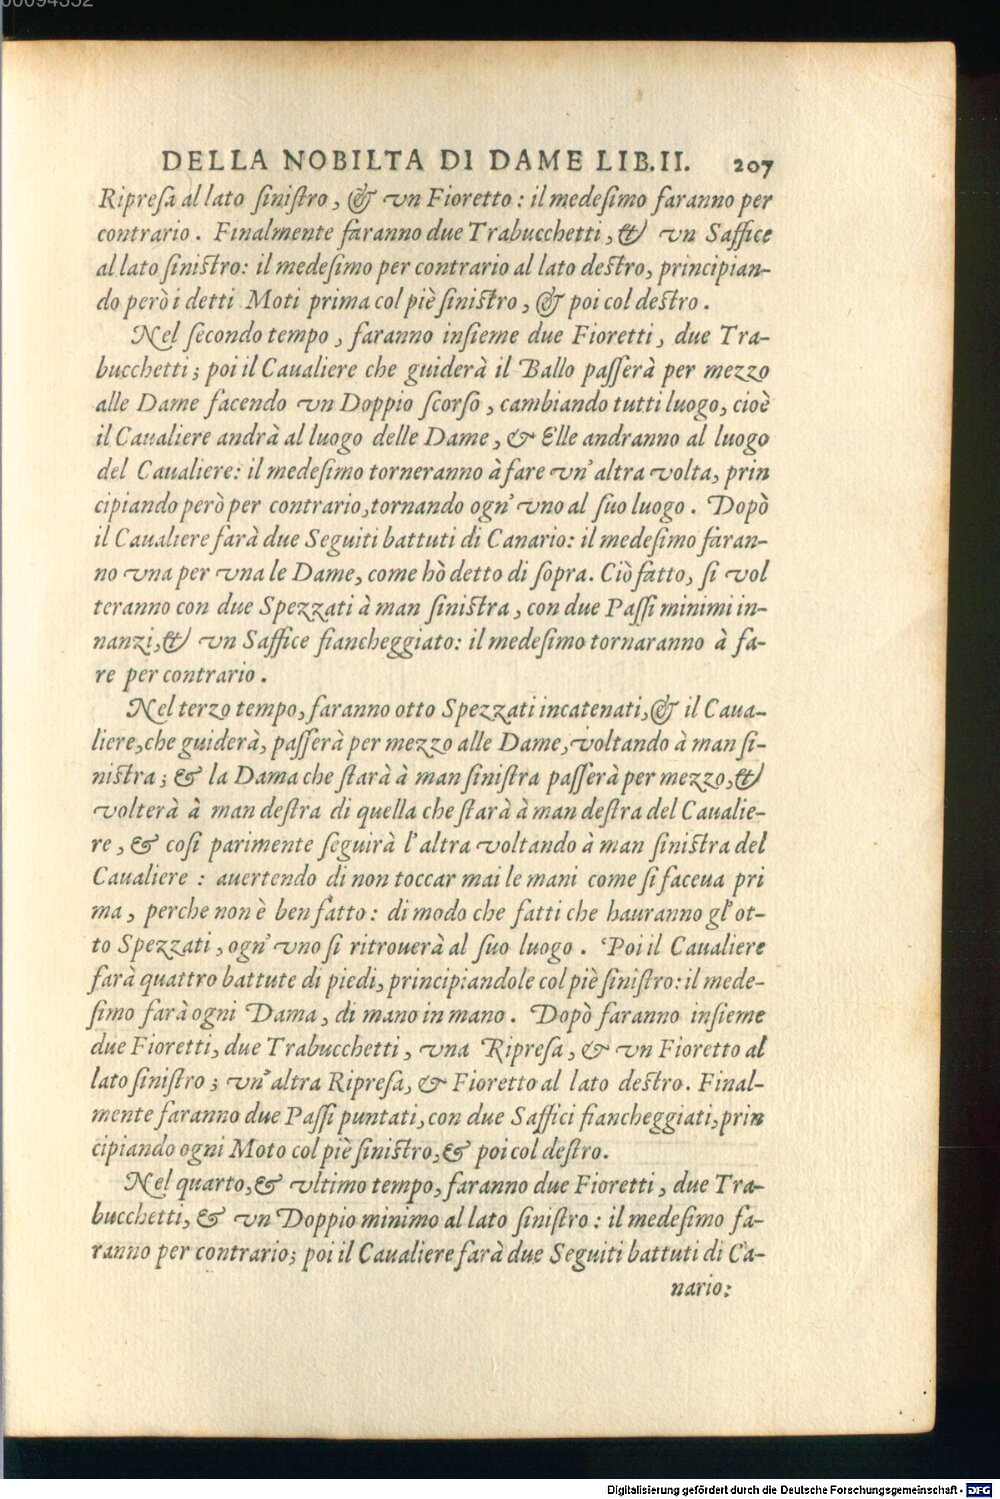 00094352
DELLA NOBILTA DI DAME LIB.II. 207
Ripreſa al lato ſiniſtro, & vn Fioretto : il medeſimo faranno per
contrario . Finalmente faranno due Trabucchetti, & vn Saffice
al lato ſiniſtro: il medeſimo per contrario al lato deſtro, principian-
do però i detti Moti prima col piè ſiniſtro, & poi col deſtro .
Nel ſecondo tempo , faranno inſieme due Fioretti, due Tra-
bucchetti; poi il Caualiere che guiderà il Ballo paſſerà per mezzo
alle Dame facendo vn Doppio ſcorſo , cambiando tutti luogo, cioè
il Caualiere andrà al luogo delle Dame, & Elle andranno al luogo
del Caualiere: il medeſimo torneranno à fare vn' altra volta, prin
cipiando però per contrario,tornando ogn' vno al ſuo luogo . Dopò
il Caualiere farà due Seguiti battuti di Canario: il medeſimo faran-
no vna per vna le Dame, come hò detto di ſopra. Ciò fatto, ſi vol
teranno con due Spezzati à man ſiniſtra, con due Paſſi minimi in-
nanzi,& vn Saffice fiancheggiato: il medeſimo tornaranno à fa-
re per contrario .
Nel terzo tempo, faranno otto Spezzati incatenati,& il Caua-
liere,che guiderà, paſſerà per mezzo alle Dame,voltando à man ſi-
niſtra ; & la Dama che ſtarà à man ſiniſtra paſſerà per mezzo,&
volterà à man deſtra di quella che ſtarà à man deſtra del Caualie-
re , & coſi parimente ſeguirà l' altra voltando à man ſiniſtra del
Caualiere : auertendo di non toccar mai le mani come ſi faceua pri
ma, perche non è ben fatto : di modo che fatti che hauranno gl' ot-
to Spezzati, ogn' vno ſi ritrouerà al ſuo luogo . Poi il Caualiere
farà quattro battute di piedi, principiandole col piè ſiniſtro: il mede-
ſimo farà ogni Dama, di mano in mano . Dopò faranno inſieme
due Fioretti, due Trabucchetti, vna Ripreſa, & vn Fioretto al
lato ſiniſtro ; vn' altra Ripreſa, & Fioretto al lato deſtro. Final-
mente faranno due Paſſi puntati, con due Saffici fiancheggiati,prin
cipiando ogni Moto col piè ſiniſtro,& poi col deſtro.
Nel quarto,& vltimo tempo, faranno due Fioretti, due Tra-
bucchetti, & vn Doppio minimo al lato ſiniſtro : il medeſimo fa-
ranno per contrario; poi il Caualiere farà due Seguiti battuti di Ca-
nario:
Digitalisierung gefördert durch die Deutsche Forschungsgemeinschaft - DFG